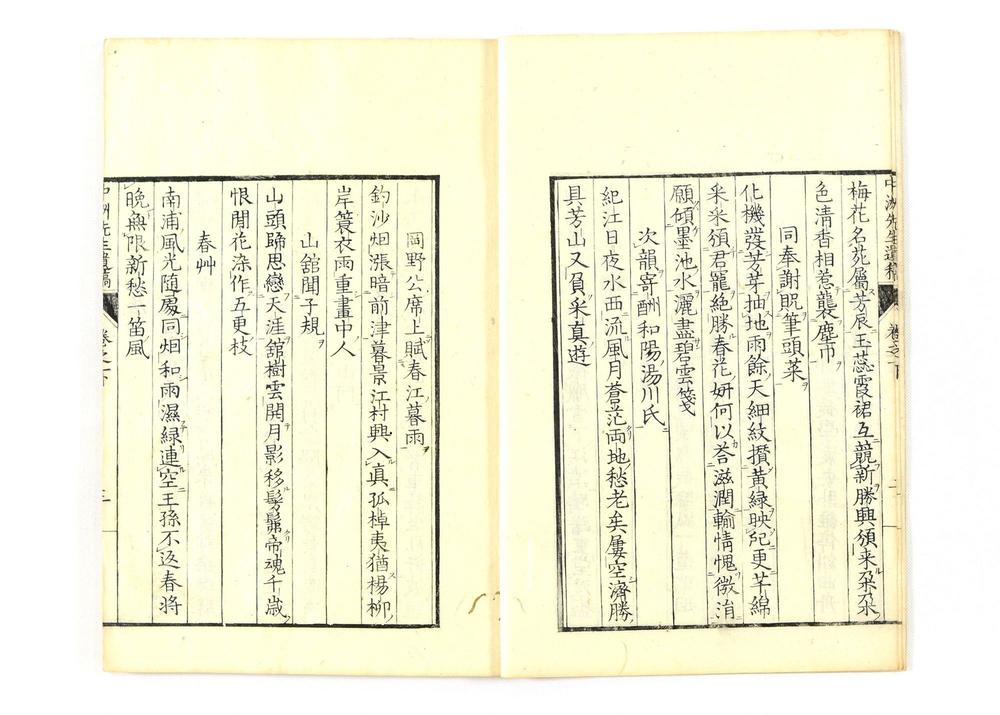 梅花名苑屬芳辰玉蕊霞裙互競新勝興頒来朶朶
色清香相惹襲塵巾
同奉謝貺筆頭菜
化機發芳芽抽地雨餘天細紋攢黄緑映紀更芊綿
采采頒君寵絶勝春花妍何以荅滋潤輸情愧微涓
願傾墨池水灑盡碧雲箋
次韻寄酬和陽湯川氏
紀江日夜水西流風月蒼茫両地愁老矣屢空濟勝
具芳山又負采真遊
中洲先生遺稿
卷之下
二
岡野公席上賦春江暮雨
釣沙烟漲暗前津暮景江村興入真孤棹夷猶楊柳
岸簑衣雨重畫中人
山舘聞子規
山頭歸思戀天涯舘樹雲開月影移髣髴帝魂千歳
恨閒花染作五更枝
春艸
南浦風光隨處同烟和雨濕緑連空王孫不返春將
晩無限新愁一笛風
洲先生遺稿
卷之下
三